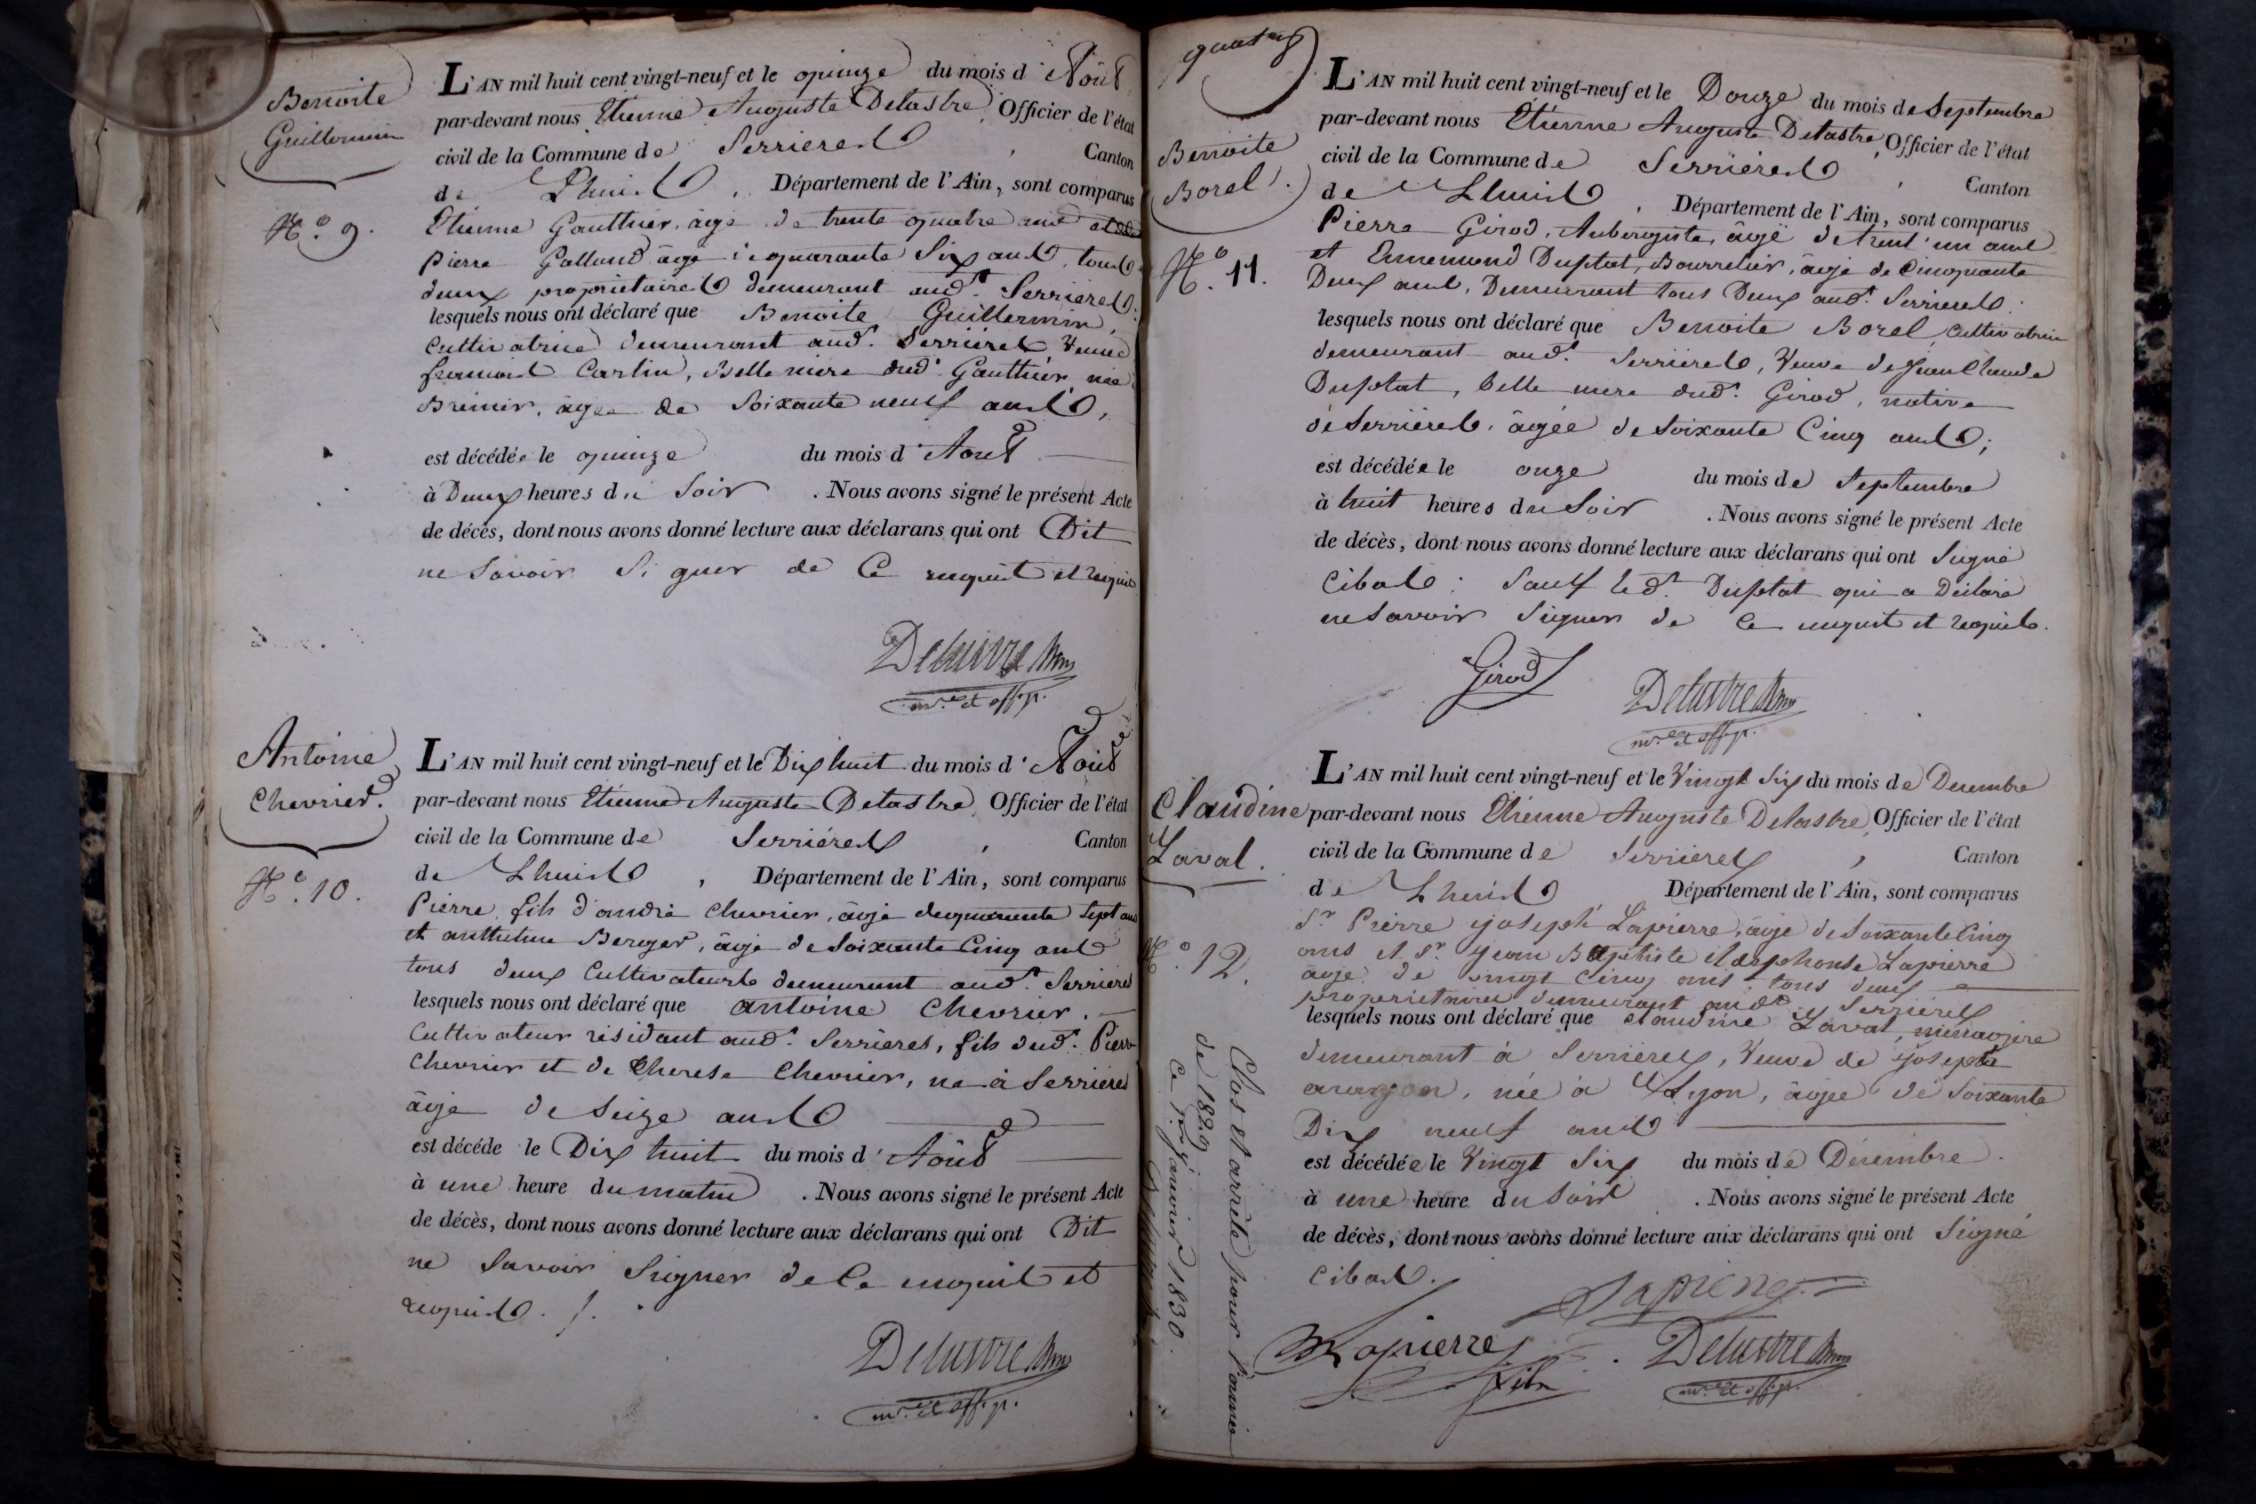 Benoite
Guillermin
N.° 9.
L'AN mil huit cent vingt-neuf et le quinze du mois d'Août
par-devant nous Etienne Auguste Delastre, Officier de l'état
civil de la Commune de Serrieres, Canton
de Lhuis, Département de l'Ain, sont comparus
Etienne Gauthier, âgé de trente quatre ans et
Pierre Galland âgé de quarante Six ans, tous
deux propriétaires demeurant aud.t Serrieres.
lesquels nous ont déclaré que Benoite Guillermin,
Cultivatrice demeurant aud.t Serrieres Veuve
Carlin, Belle mère dud.t Gauthier, née
âgée de Soixante neuf ans,
est décédée le quinze du mois d'Août
à Deux heures du Soir. Nous avons signé le présent Acte
de décès, dont nous avons donné lecture aux déclarans qui ont Dit
ne Savoir Signer de Ce enquit et requis
Delastre
m.re et off. p.
Antoine
Chevrier.
N.° 10.
L'AN mil huit cent vingt-neuf et le Dix huit du mois d'Août
par-devant nous Etienne Auguste Delastre, Officier de l'état
civil de la Commune de Serriéres, Canton
de Lhuis, Département de l'Ain, sont comparus
Pierre fils d'andré Chevrier, âgé de quarante Sept ans
et anthelme Berger, âgé de Soixante Cinq ans
tous deux Cultivateurs demeurant aud.t Serrieres
lesquels nous ont déclaré que antoine Chevrier.
Cultivateur résidant aud.t Serrieres, fils dud.t Pierre
Chevrier et de Therese Chevrier, né à Serrieres
âgé de Seize ans
est décédé le Dix huit du mois d'Août
à une heure du matin. Nous avons signé le présent Acte
de décès, dont nous avons donné lecture aux déclarans qui ont Dit
ne Savoir Signer de Ce enquit et
requis.
Delastre
m.re et off. p.
Benoite
Borel.
N.° 11.
L'AN mil huit cent vingt-neuf et le Douze du mois de Septembre
par-devant nous Etienne Auguste Delastre, Officier de l'état
civil de la Commune de Serriéres, Canton
de Lhuis, Département de l'Ain, sont comparus
Pierre Girod, Aubergiste, âgé de trent'un ans
et Ennemond Duplat, Bourrelier, âgé de Cinquante
Deux ans, Demeurant tous Deux aud.t Serrieres.
lesquels nous ont déclaré que Benoite Borel, Cultivatrice
demeurant aud.t Serrieres, Veuve de Jean Claude
Duplat, belle mere dud.t Girod, native
de Serriéres, âgée de Soixante Cinq ans;
est décédée le onze du mois de Septembre
à huit heures du Soir. Nous avons signé le présent Acte
de décès, dont nous avons donné lecture aux déclarans qui ont Signé
Cibas: Sauf led.t Duplat qui a Déclaré
ne Savoir Signer de Ce enquit et requis.
Girod
Delastre
m.re et off. p.
Claudine
Laval.
N.° 12.
L'AN mil huit cent vingt-neuf et le Vingt Six du mois de Decembre
par-devant nous Etienne Auguste Delastre, Officier de l'état
civil de la Commune de Serrieres, Canton
de Lhuis Département de l'Ain, sont comparus
S.r Pierre joseph Lapierre, âgé de Soixante Cinq
ans et S.r Jean Baptiste ildephonse Lapierre
âgé de vingt Cinq ans, tous deux
propriétaires demeurant aud.t Serrieres
lesquels nous ont déclaré que claudine Laval, ménagère
demeurant à Serrieres, Veuve de joseph
née à Lyon, âgée de Soixante
Dix neuf ans
est décédée le Vingt Six du mois de Décembre.
à une heure du Soir. Nous avons signé le présent Acte
de décès, dont nous avons donné lecture aux déclarans qui ont Signé
cibas.
Lapierre
Lapierre
fils
Delastre
m.re et off. p.
Clos et arrêté pour l'année
de 1829,
Ce 1.er janvier 1830.